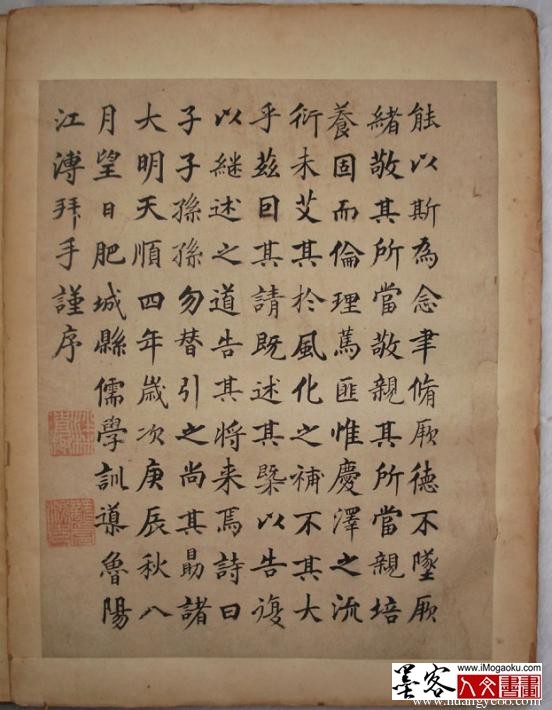 能以斯為念聿脩厥德不墜厥
緒敬其所當敬親其所當親培
養固而倫理篤匪惟慶澤之流
衍未艾其於風化之補不其大
乎茲囙其請既述其槩以告復
以継述之道告其將来焉詩曰
子子孫孫勿替引之尚其勗諸
大明天順四年歲次庚辰秋八
月望日肥城縣儒學訓導魯陽
江溥拜手謹序
www.iMogaoku.com
墨客
人文書畫